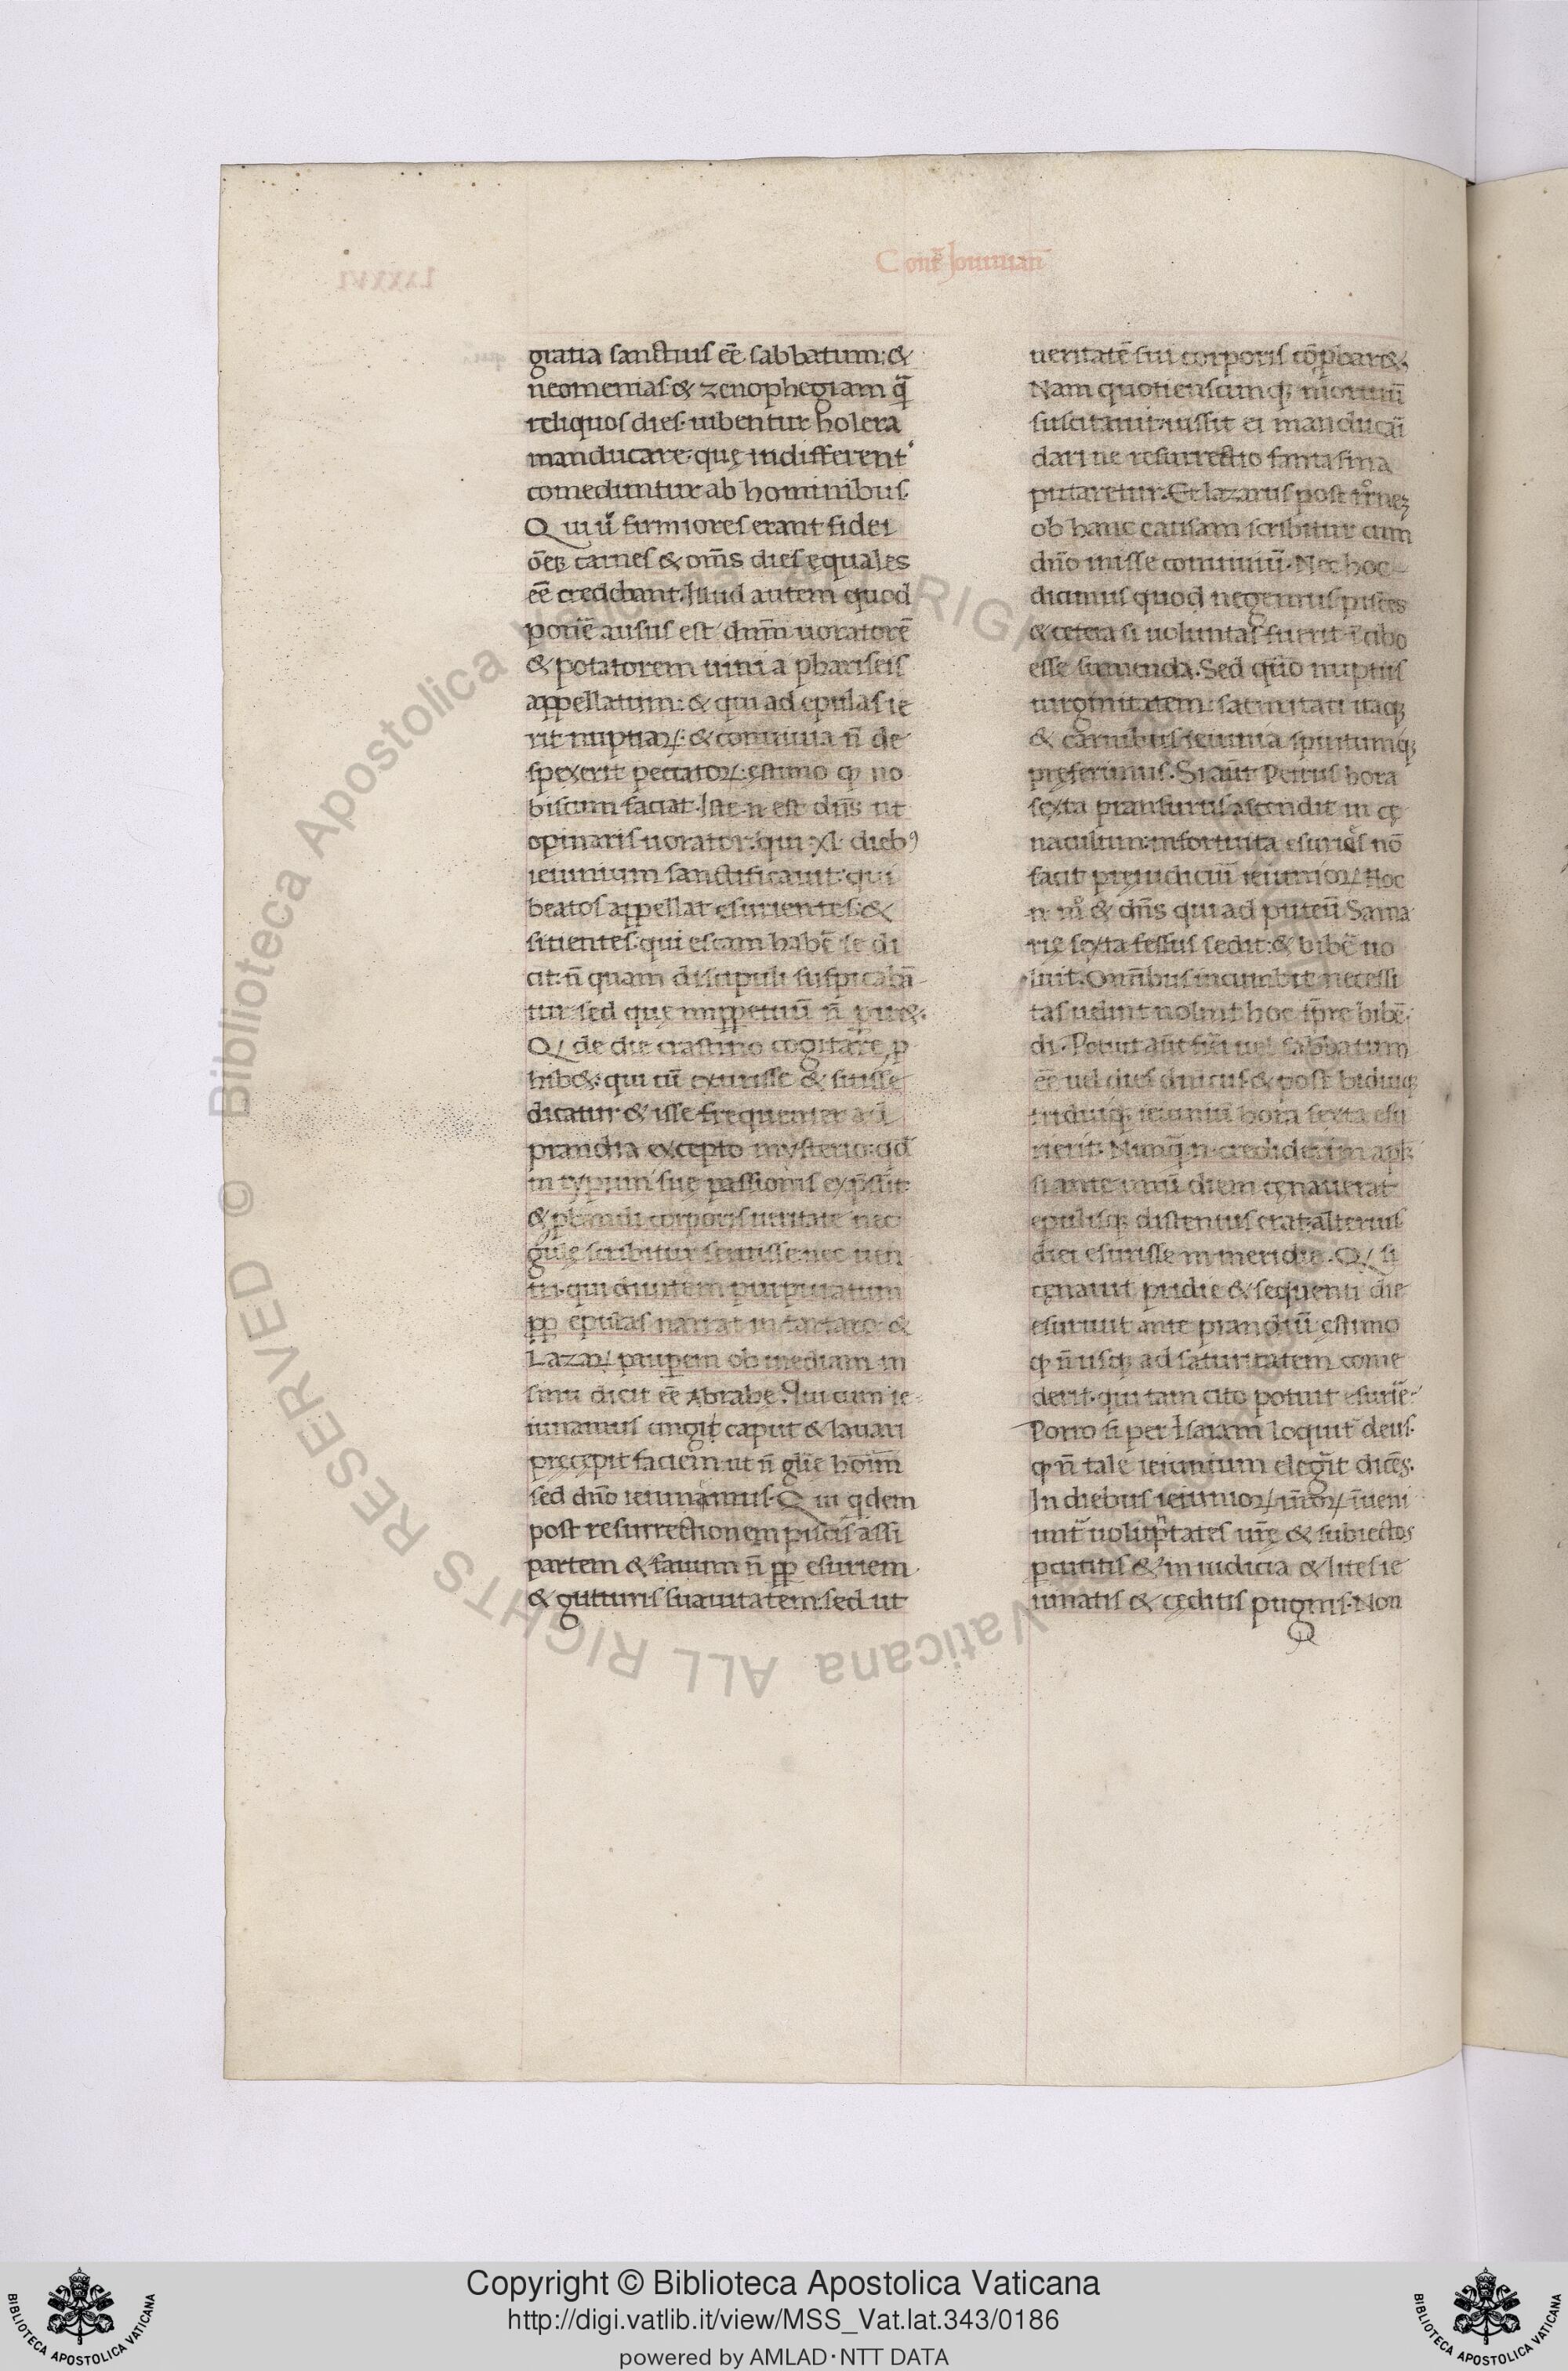 Cont̄ Iouinian̄
gratia sanctius eē sabbatum: &
neomenias & zenophegiam q̄
reliquos dies. iubentur holera
manducare: quę indifferent᛫
comeduntur ab hominibus.
Qui ū firmiores erant fidei
ōēs carnes & om̄s dies ęquales
eē credebant. Illud autem quod
ponē ausus est dn̄m uoratorē
& potatorem uini a phariseis
appellatum: & qui ad epulas ie
rit nuptiaꝝ: & conuiuia n̄ de
spexerit peccatoꝝ: ęstimo ꝙ no
biscum faciat. Iste n̄ est dn̄s ut
opinaris uorator: qui xl dieb᷒
ieiunium sanctificauit: qui
beatos appellat esurientes: &
sitientes: qui escam habē se di
cit: n̄ quam discipuli suspicabā
tur sed quę inꝑpetuū n̄ ꝑir&.
Qͥ de die crastino cogitare ꝓ
hib&: qui cū exurisse & sitisse
dicatur & isse frequenter ad
prandia excepto mysterio: qd̄
in typum suę passionis exp̄ssit
& ꝓbandi corporis ueritate nec
gulę scribitur seruisse: nec uen
tri. qui diuitem purpuratum
ꝓꝑ epulas narrat in tartaro: &
Lazaꝝ pauꝑem ob inediam in
sinu dicit eē Abrahę. Qui cum ie
iunamus ungi caput & lauari
pręcepit faciem: ut n̄ glīę hoīm
sed dn̄o ieiunamus. Qui qdem
post resurrectionem piscis assi
partem & fauum n̄ ꝓꝑ esuriem
& gutturis suauitatem: sed ut
ueritatē sui corporis cōꝓbar&.
Nam quotienscumqꝫ mortuū
suscitauit: iussit ei manducāi
dari ne resurrectio fantasma
putaretur. Et lazarus post rr̄neꝫ
ob hanc causam scribitur cum
dn̄o inisse conuiuiū. Nec hoc
dicimus quod negemus pisces
& cetera si uoluntas fuerit ī cibo
esse sumenda. Sed quō nuptiis
uirginitatem: saturitati itaqꝫ
& carnibus ieiunia spiritumqꝫ
pręferimus. Si aūt Petrus hora
sexta pransurus ascendit in cę
naculum: infortuita esuries nō
facit pręiudiciū ieiunioꝝ. Hoc
n̄ m̊ & dn̄s qui ad puteū Sama
rię sexta fessus sedit: & bibē uo
luit. Omnibus incumbit necessi
tas uelint nolint hoc tp̄re bibē
di. Potuit aūt fiēi uel sabbatum
eē uel dies dn̄icus. & post biduiqꝫ
triduiqꝫ ieiuniū hora sexta esu
rierit. Nunq̄ n̄ crediderim apl̄ꝫ
si ante unū diem cęnauerat
epulisqꝫ distentus erat: alterius
diei esurisse in meridie. Qͥ si
cęnauit pridie & sequenti die
esuriuit ante prandiū: ęstimo
ꝙ n̄ usqꝫ ad saturitatem come
derit. qui tam cito potuit esurīe.
Porro si per Isaiam loquit᷑ deus.
ꝙ n̄ tale ieiunium elegit dicēs.
In diebus ieiunioꝝ ūr̄oꝝ īueni
unt᷑ uoluptates ur̄ę & subiectos
ꝑcutitis & in iudicia & lites ie
iunatis & cęditis pugnis. Non
Copyright © Biblioteca Apostolica Vaticana
http://digi.vatlib.it/view/MSS_Vat.lat.343/0186
powered by AMLAD·NTT DATA